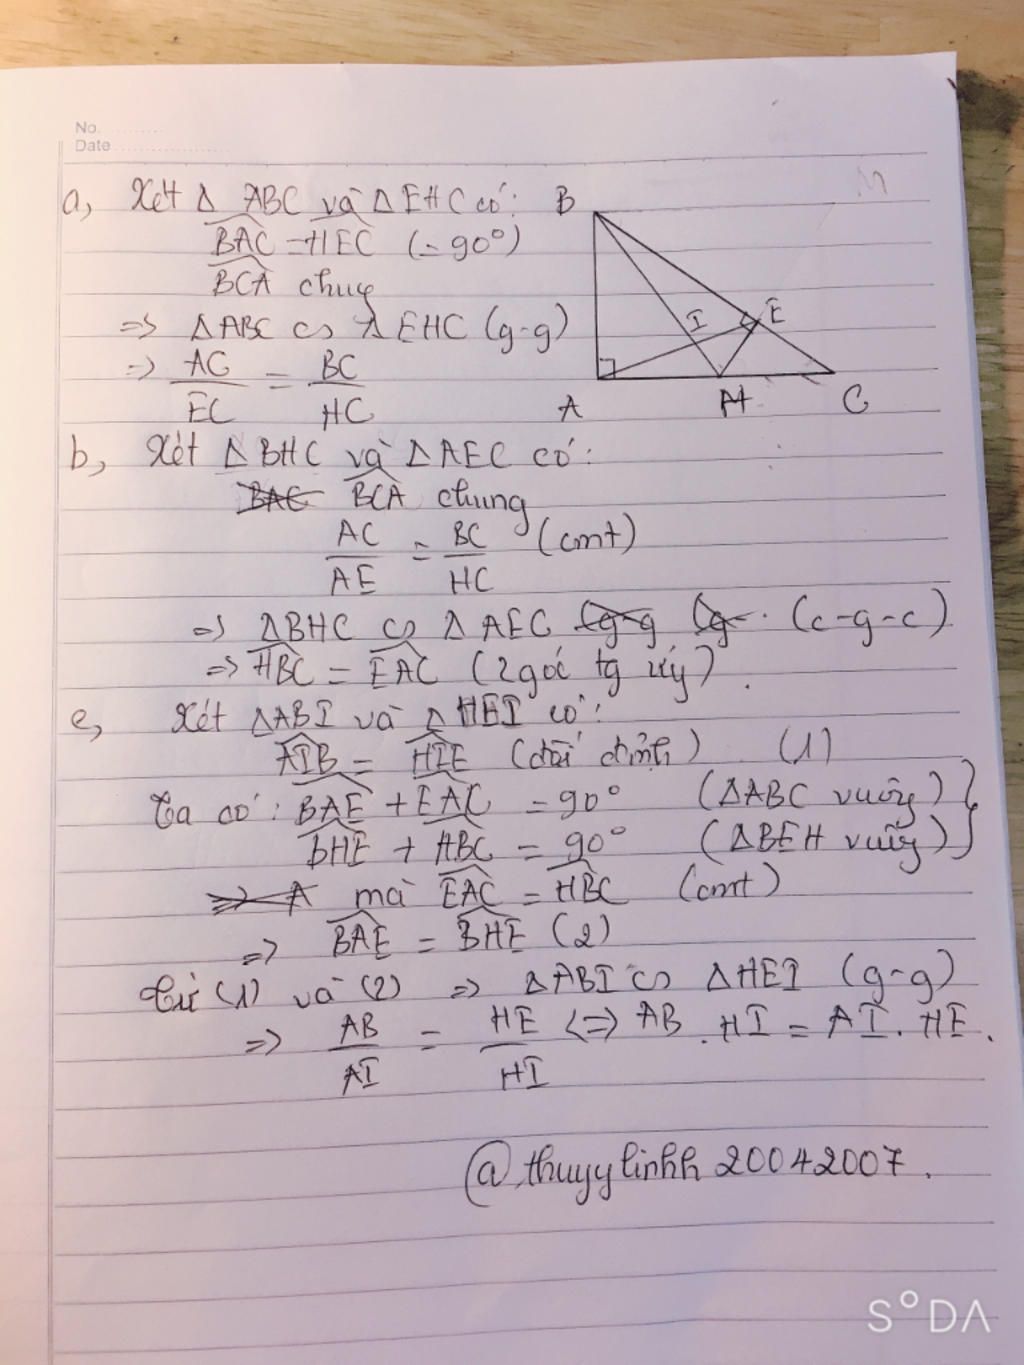 No.
Date
a, Xét Δ ABC và Δ EHC có:
BAC = HEC (= 90°)
BCA chug
=> ΔABC ∽ ΔEHC (g-g)
=> AC/EC = BC/HC
B
I
E
A
H
C
M
b, Xét ΔBHC và ΔAEC có:
BCA chung
AC/AE = BC/HC (cmt)
=> ΔBHC ∽ ΔAEC (c-g-c)
=> HBC = EAC (2 góc tg ứg).
c, Xét ΔABI và ΔHEI có:
AIB = HIE (đối đỉnh) (1)
Ta có: BAE + EAC = 90° (ΔABC vuông)
BHE + HBC = 90° (ΔBEH vuôg)
mà EAC = HBC (cmt)
=> BAE = BHE (2)
Từ (1) và (2) => ΔABI ∽ ΔHEI (g-g)
=> AB/AI = HE/HI <=> AB . HI = AI . HE.
@thuyylinhh20042007.
S°DA